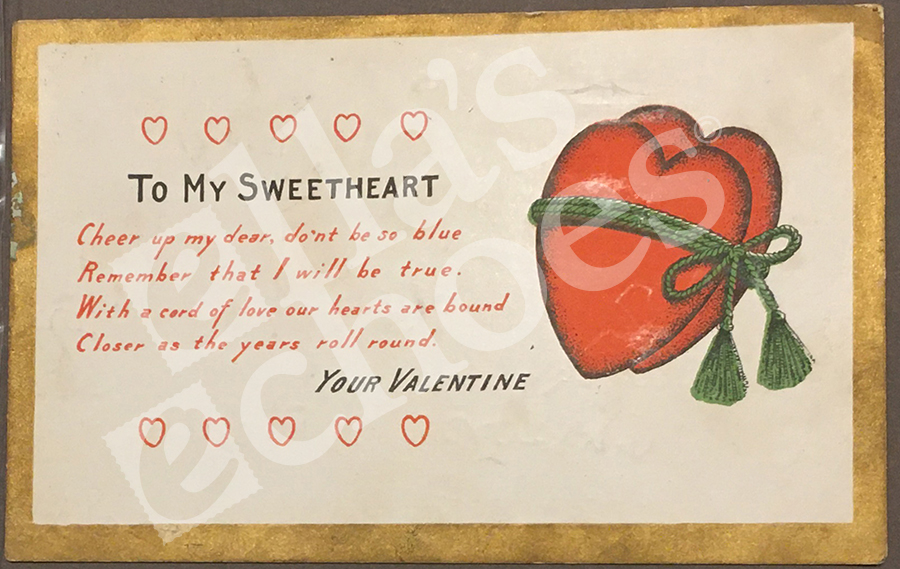 To My Sweetheart
Cheer up my dear, do'nt be so blue
Remember that I will be true.
With a cord of love our hearts are bound
Closer as the years roll round.
Your Valentine
ella's
echoes
©